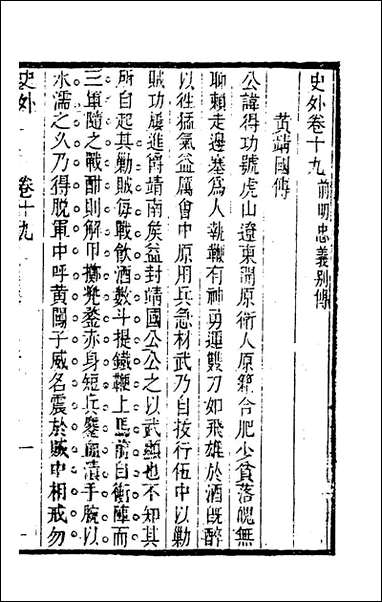 史外卷十九 前明忠義別傳
黃靖國傳
公諱得功號虎山遼東開原衛人原籍合肥少貧落魄無
聊賴走邊塞為人執鞭有神勇運雙刀如飛雄於酒既醉
以往猛氣益厲會中原用兵急材武乃自拔行伍中以勦
賊功屢進爵靖南矦益封靖國公公之以武顯也不知其
所自起其勦賊每戰飲酒數斗提鐵鞭上馬前自衝陣而
三軍隨之戰酣則解甲擲兜鍪赤身短兵鏖血漬手腕以
水濡之久乃得脫軍中呼黃闖子威名震於賊中相戒勿
史外
卷十九
一